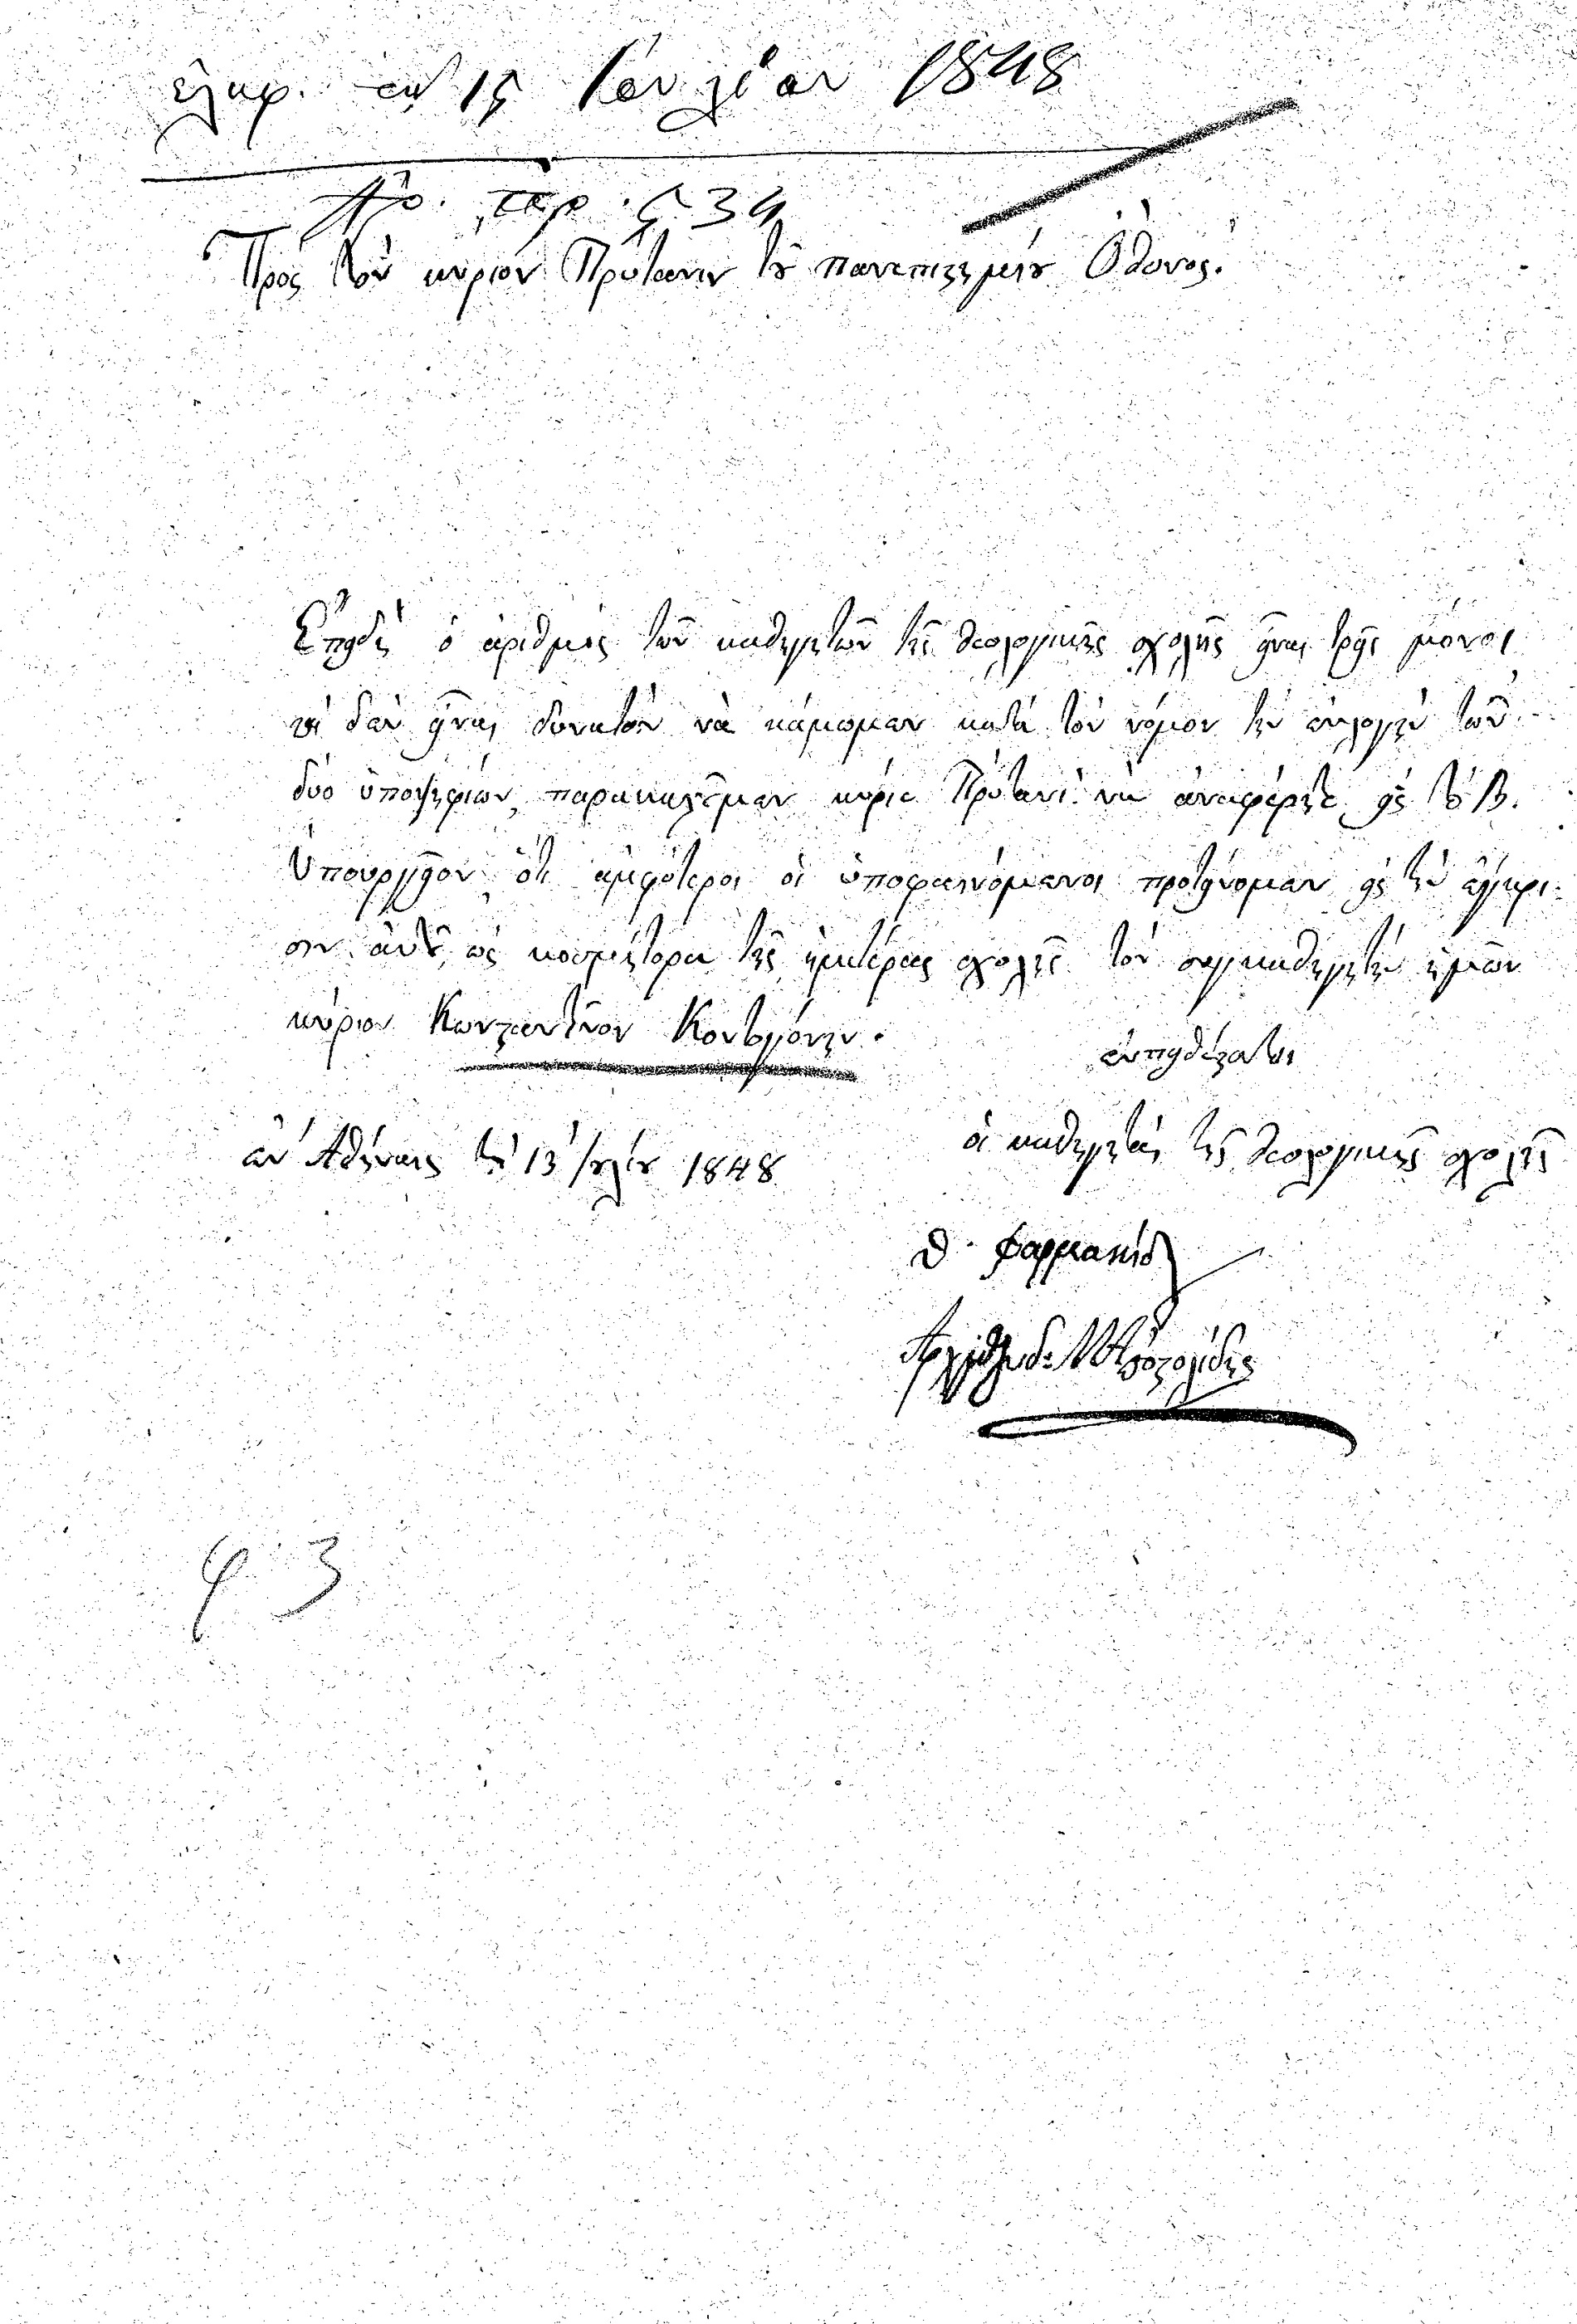 ἐλήφ. τῇ 15 Ἰουλίου 1848
Ἀρ. πρ. 534
Πρὸς τὸν κύριον Πρύτανιν τοῦ πανεπιστημίου Ὄθωνος.
Ἐπειδὴ ὁ ἀριθμὸς τῶν καθηγητῶν τῆς θεολογικῆς σχολῆς εἶναι τρεῖς μόνοι
καὶ δὲν εἶναι δυνατὸν νὰ κάμωμεν κατὰ τὸν νόμον τὴν ἐκλογὴν τῶν
δύο ὑποψηφίων, παρακαλοῦμεν κύριε Πρύτανι νὰ ἀναφέρητε εἰς τὸ Β.
Ὑπουργεῖον ὅτι ἀμφότεροι οἱ ὑποφαινόμενοι προτείνομεν εἰς τὴν ἔγκρι-
σιν αὐτοῦ ὡς κοσμήτορα τῆς ἡμετέρας σχολῆς τὸν συγκαθηγητὴν ἡμῶν
κύριον Κωνσταντῖνον Κοντογόνην.
εὐπειθέστατοι
ἐν Ἀθήναις τῇ 13 Ἰουλίου 1848
οἱ καθηγηταὶ τῆς θεολογικῆς σχολῆς
Θ. Φαρμακίδης
Μ. Ἀποστολίδης
φ 3